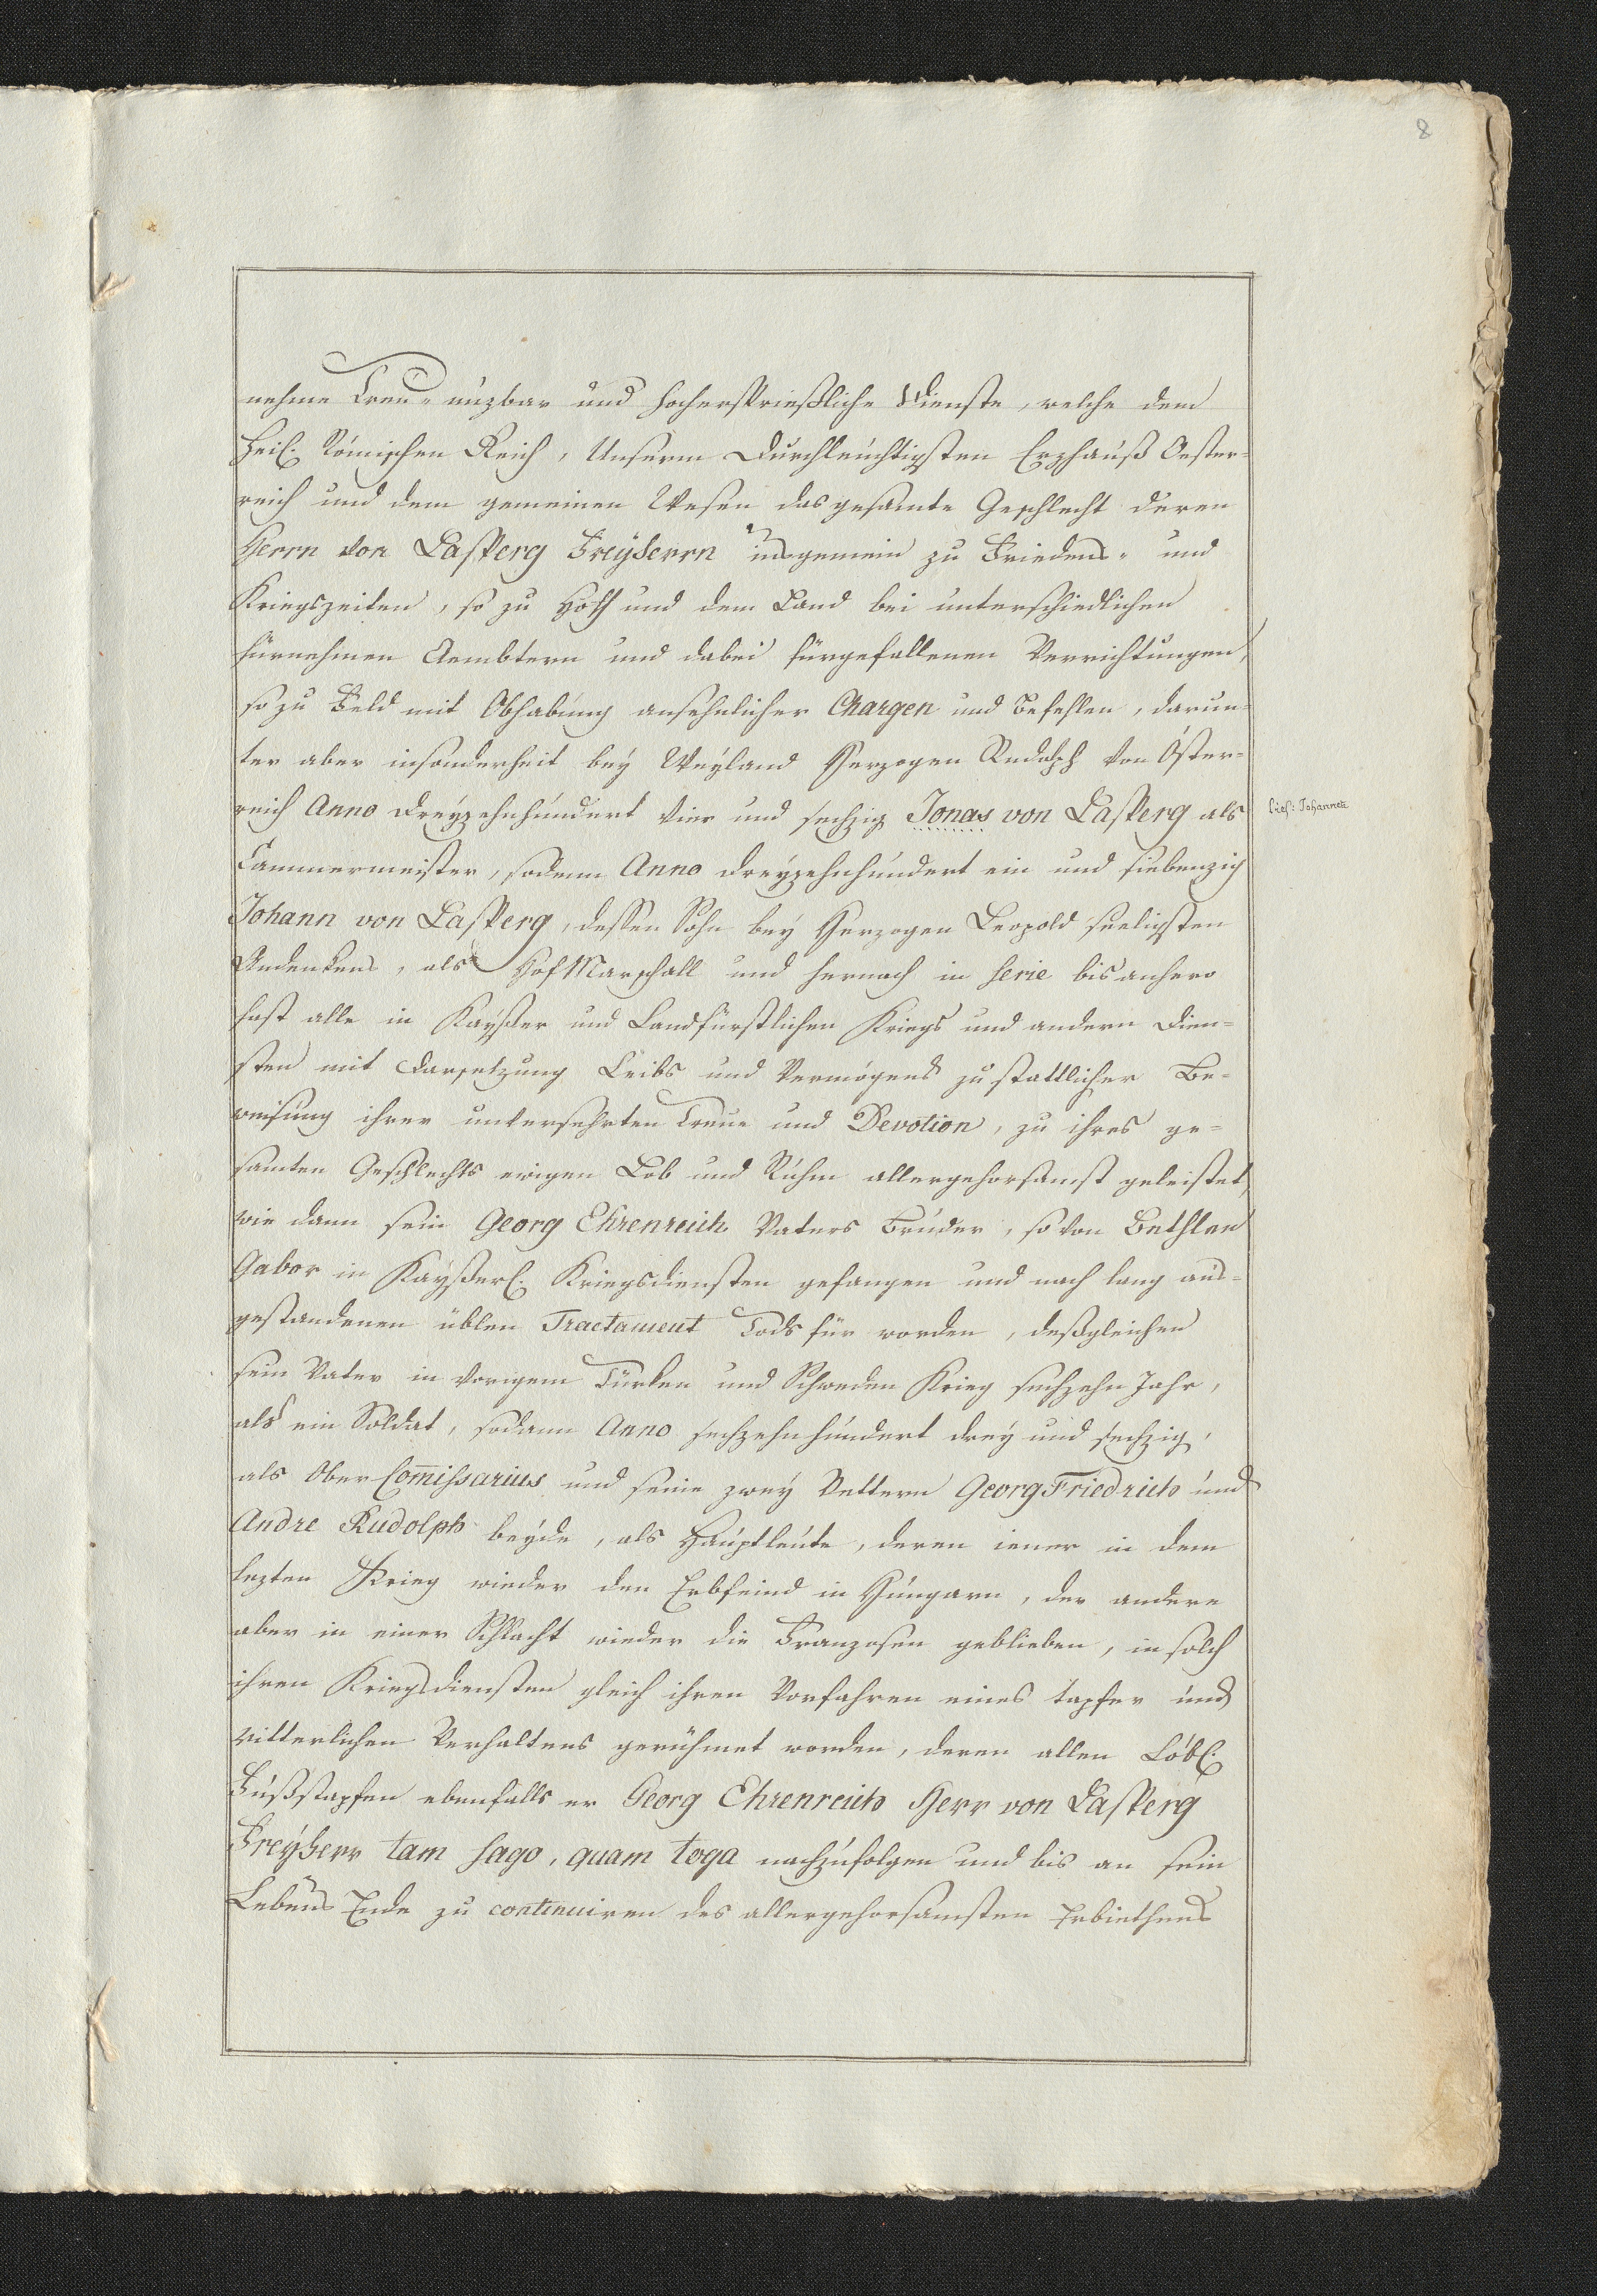 8
nehme Treu- nuzbar und hochersprießliche Dienste, welche dem
Heil. Römischen Reich, Unserm Durchleuchtigsten Erzhauß Oester-
reich und dem gemeinen Wesen das gesamte Geschlecht deren
Herrn von Lasperg Freyherrn insgemein zu Friedens- und
Kriegszeiten, so zu Hoff und dem Land bei unterschiedlichen
fürnehmen Aembtern und dabei fürgefallenen Verrichtungen,
so zu Feld mit Obhabung ansehnlicher Chargen und Befehlen, darun-
ter aber insonderheit bey Weyland Herzogen Rudolph von Öster-
reich Anno dreyzehnhundert vier und sechzig Jonas von Lasperg als
lies: Johannes
Cammermeister, sodann Anno dreyzehnhundert ein und siebenzig
Johann von Lasperg, dessen Sohn bey Herzogen Leopold seeligsten
Andenkens, als HofMarschall und hernach in serie bis anhero
fast alle in Kayßer und Landfürstlichen Kriegs und andern Dien-
sten mit Darsetzung Leibs und Vermögens zu stattlicher Be-
weisung ihrer unversehrten Treue und Devotion, zu ihres ge-
samten Geschlechts ewigen Lob und Ruhm allergehorsamst geleistet,
wie dann sein Georg Ehrenreich Vaters Bruder, so von Bethlen
Gabor in Kayßerl. Kriegsdiensten gefangen und nach lang aus-
gestandenen üblen Tractament Tods für worden, deßgleichen
sein Vater in vorigem Türken und Schweden Krieg sechzehn Jahr,
als ein Soldat, sodann Anno sechzehnhundert drey und sechzig,
als Ober Com̅issarius und seine zwey Vettern Georg Friedrich und
Andre Rudolph beyde, als Hauptleute, deren iener in dem
lezten Krieg wieder den Erbfeind in Hungarn, der andere
aber in einer Schlacht wieder die Franzosen geblieben, in solch
ihren Kriegsdiensten gleich ihren Vorfahren eines tapfer und
ritterlichen Verhaltens gerühmet worden, deren allen Löbl.
Fußstapfen ebenfalls er Georg Ehrenreich Herr von Lasperg
Freyherr tam sago, quam toga nachzufolgen und bis an sein
Lebens Ende zu continuiren des allergehorsamsten Erbiethens